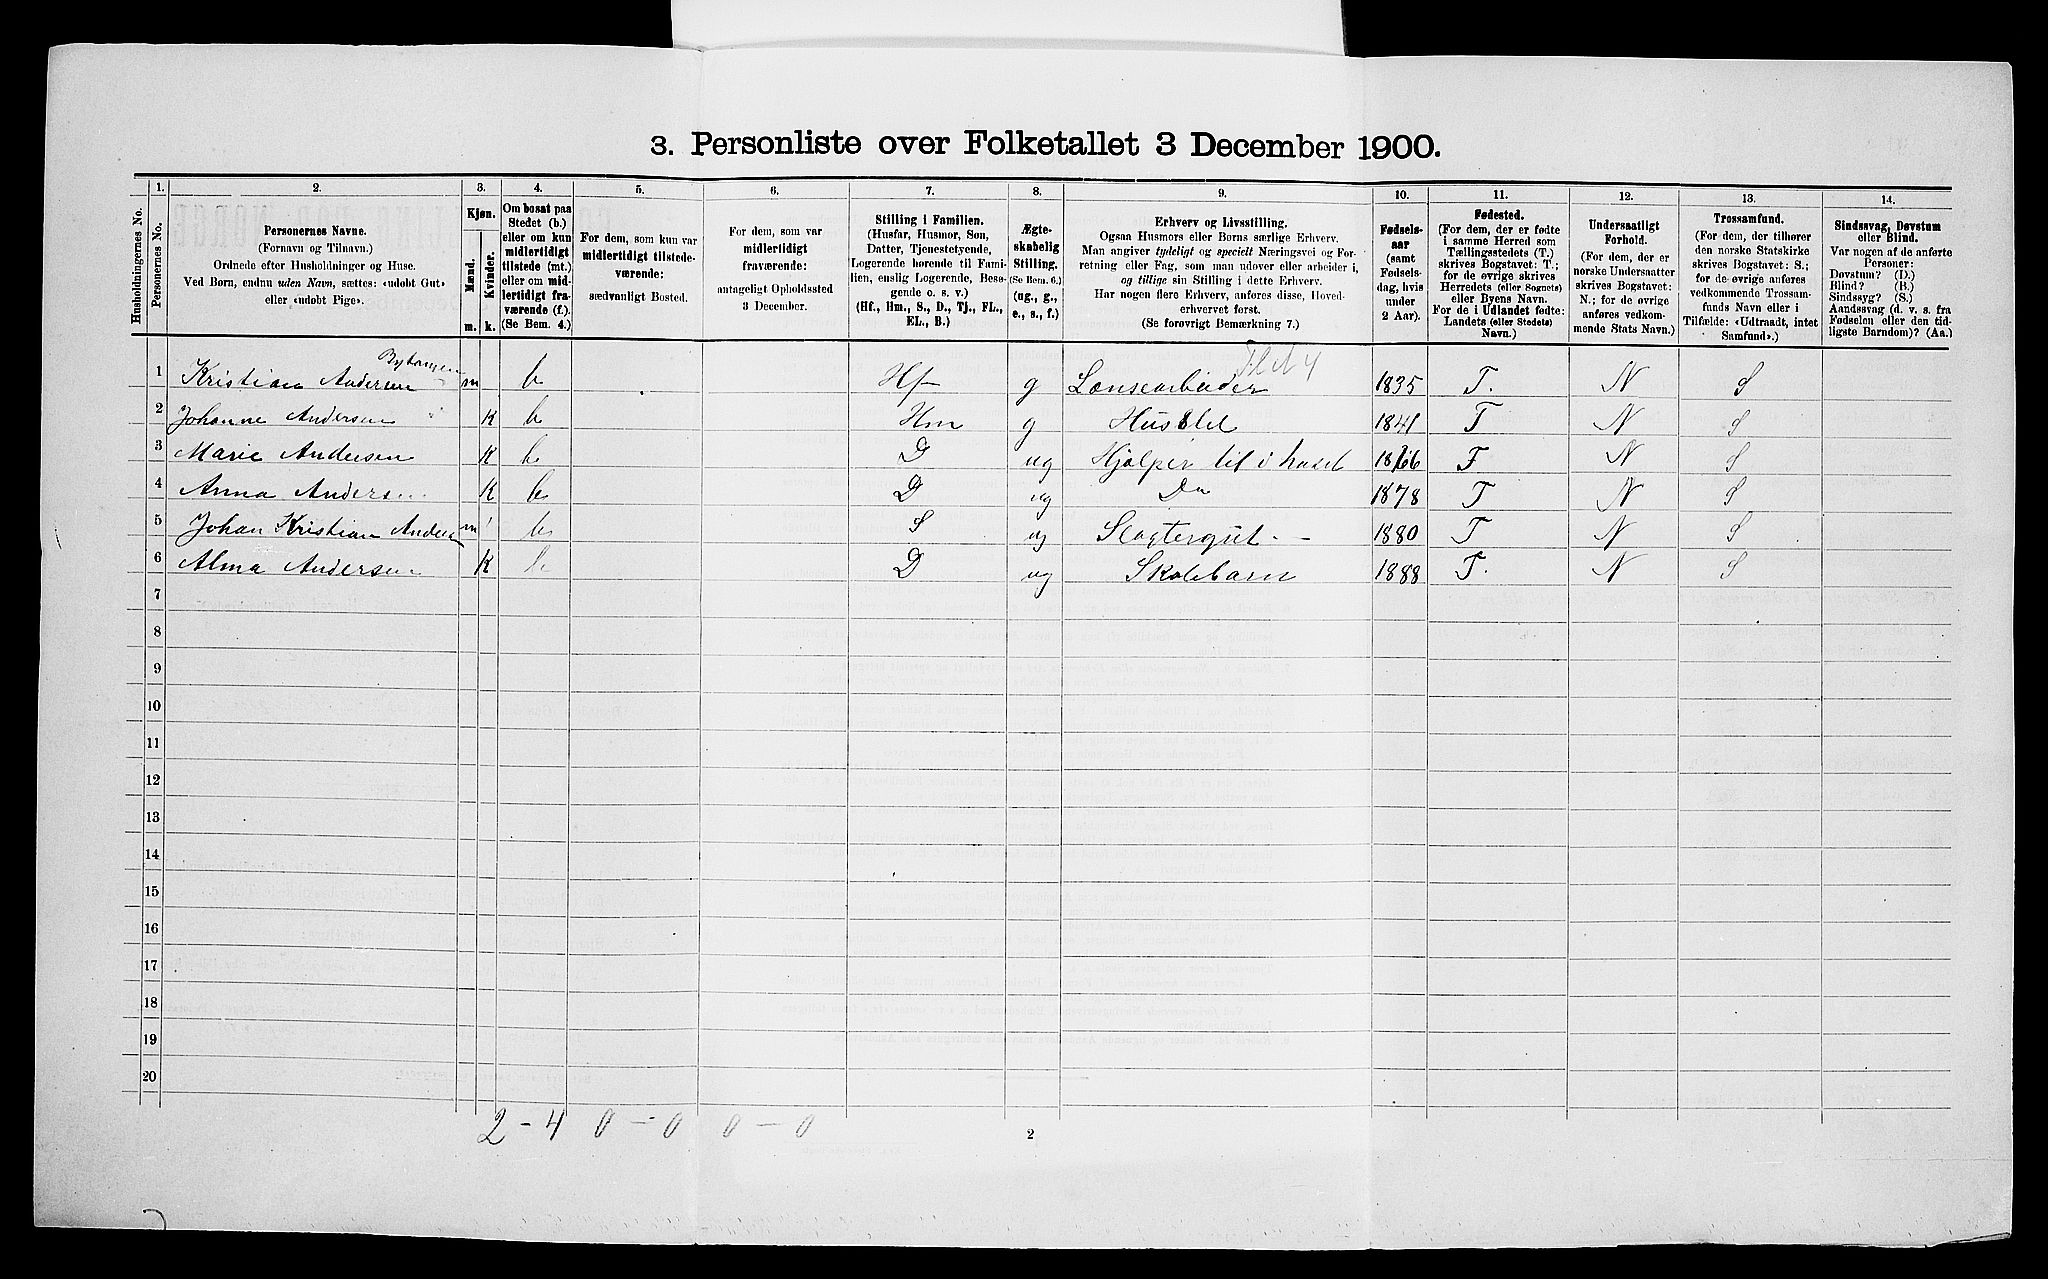 3. Personliste over Folketallet 3 December 1900.
Husholdningernes No.
1.
Personernes No.
2.
Personernes Navne.
(Fornavn og Tilnavn.)
Ordnede efter Husholdninger og Huse.
Ved Børn, endnu uden Navn, sættes: «udøbt Gut»
eller «udøbt Pige».
3.
Kjøn.
Mænd.
Kvinder.
m.
k.
4.
Om bosat paa
Stedet (b.)
eller om kun
midlertidigt
tilstede (mt.)
eller om mid-
lertidigt fra-
værende (f.).
(Se Bem. 4.)
5.
For dem, som kun var
midlertidigt tilstede-
værende:
sædvanligt Bosted.
6.
For dem, som var
midlertidigt
fraværende:
antageligt Opholdssted
3 December.
7.
Stilling i Familien.
(Husfar, Husmor, Søn,
Datter, Tjenestetyende,
Logerende hørende til Fami-
lien, enslig Logerende, Besø-
gende o. s. v.)
(Hf., Hm., S., D., Tj., FL.,
EL., B.)
8.
Ægte-
skabelig
Stilling.
(Se Bem. 6.)
(ug., g.,
e., s., f.)
9.
Erhverv og Livsstilling.
Ogsaa Husmors eller Børns særlige Erhverv.
Man angiver tydeligt og specielt Næringsvei og For-
retning eller Fag, som man udøver eller arbeider i,
og tillige sin Stilling i dette Erhverv.
Har nogen flere Erhverv, anføres disse, Hoved-
erhvervet først.
(Se forøvrigt Bemærkning 7.)
10.
Fødsels-
aar
(samt
Fødsels-
dag, hvis
under
2 Aar).
11.
Fødested.
(For dem, der er fødte
i samme Herred som
Tællingsstedets (T.)
skrives Bogstavet: T.;
for de øvrige skrives
Herredets (eller Sognets)
eller Byens Navn.
For de i Udlandet fødte:
Landets (eller Stedets)
Navn.)
12.
Undersaatligt
Forhold.
(For dem, der er
norske Undersaatter
skrives Bogstavet:
N.; for de øvrige
anføres vedkom-
mende Stats Navn.)
13.
Trossamfund.
(For dem, der tilhører
den norske Statskirke
skrives Bogstavet: S.;
for de øvrige anføres
vedkommende Trossam-
funds Navn eller i
Tilfælde: «Udtraadt, intet
Samfund».)
14.
Sindssvag, Døvstum
eller Blind.
Var nogen af de anførte
Personer:
Døvstum? (D.)
Blind? (B.)
Sindssyg? (S.)
Aandssvag (d. v. s. fra
Fødselen eller den tid-
ligste Barndom)? (Aa.)
1 Kristian Andersen m b Hf g Lænsearbeider 1835 T. N S
2 Johanne Andersen K b Hm g Husstel 1841 T N S
3 Marie Andersen K b D ug Hjælper til i huset 1866 T N S
4 Anna Andersen K b D ug Do 1878 T N S
5 Johan Kristian Andersen m b S ug Slagtergut 1880 T N S
6 Alma Andersen K b D ug Skolebarn 1888 T. N S
7
8
9
10
11
12
13
14
15
16
17
18
19
20
2 - 4 0 - 0 0 - 0
2